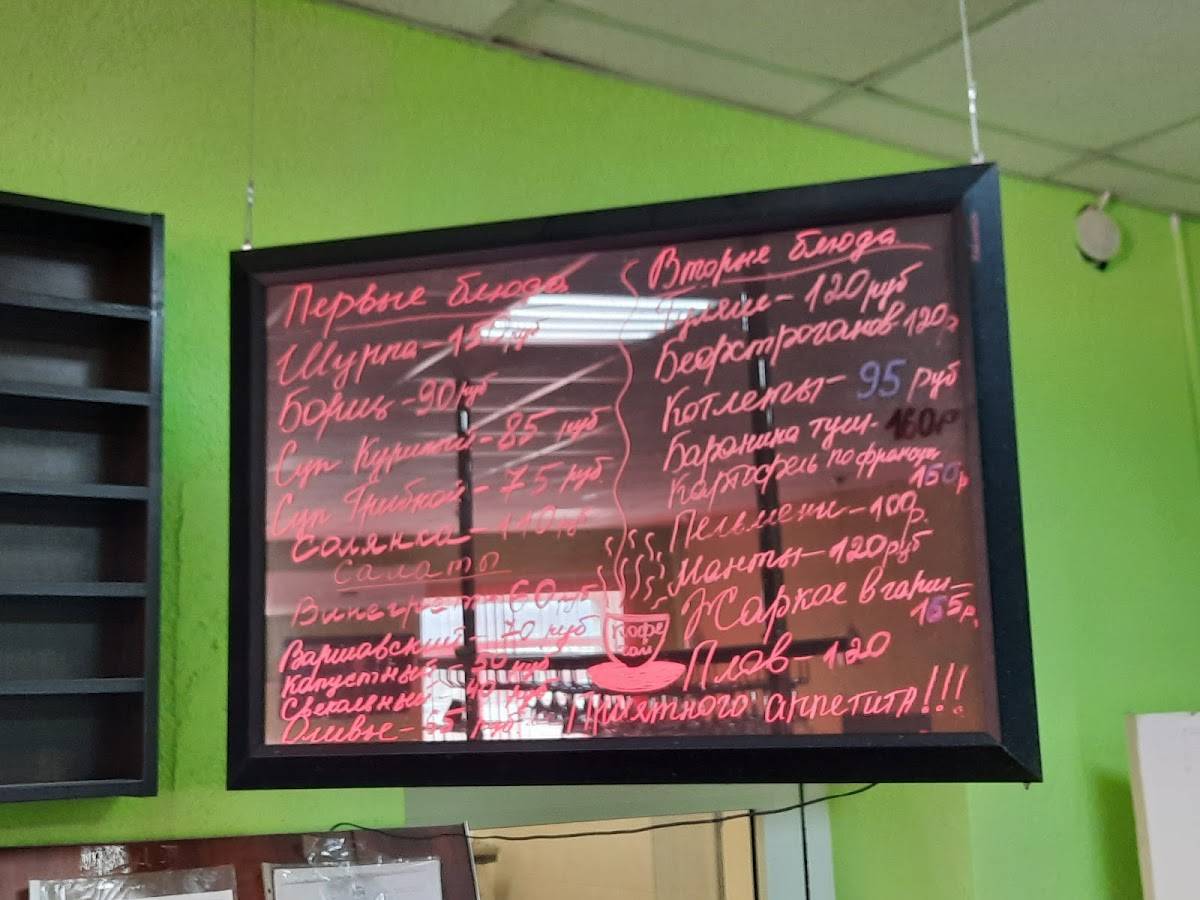 Первые блюда
Шурпа - 150 руб
Борщ - 90 руб
Суп Куриный - 85 руб
Суп Грибной - 75 руб.
Солянка - 110 руб
Салаты
Винегрет - 60 руб
Варшавский - 70 руб
Капустный - 50 руб
Свекольный - 40 руб
Оливье - 65 руб
Вторые блюда
Гуляш - 120 руб
Беофстроганов 120р
Котлеты - 95 руб
Баранина туш. 160р
Картофель по француз
150р
Пельмени - 100р.
Манты - 120 руб
Жаркое в горш -
155р.
Плов - 120
Кофе
чай
Приятного аппетита!!!